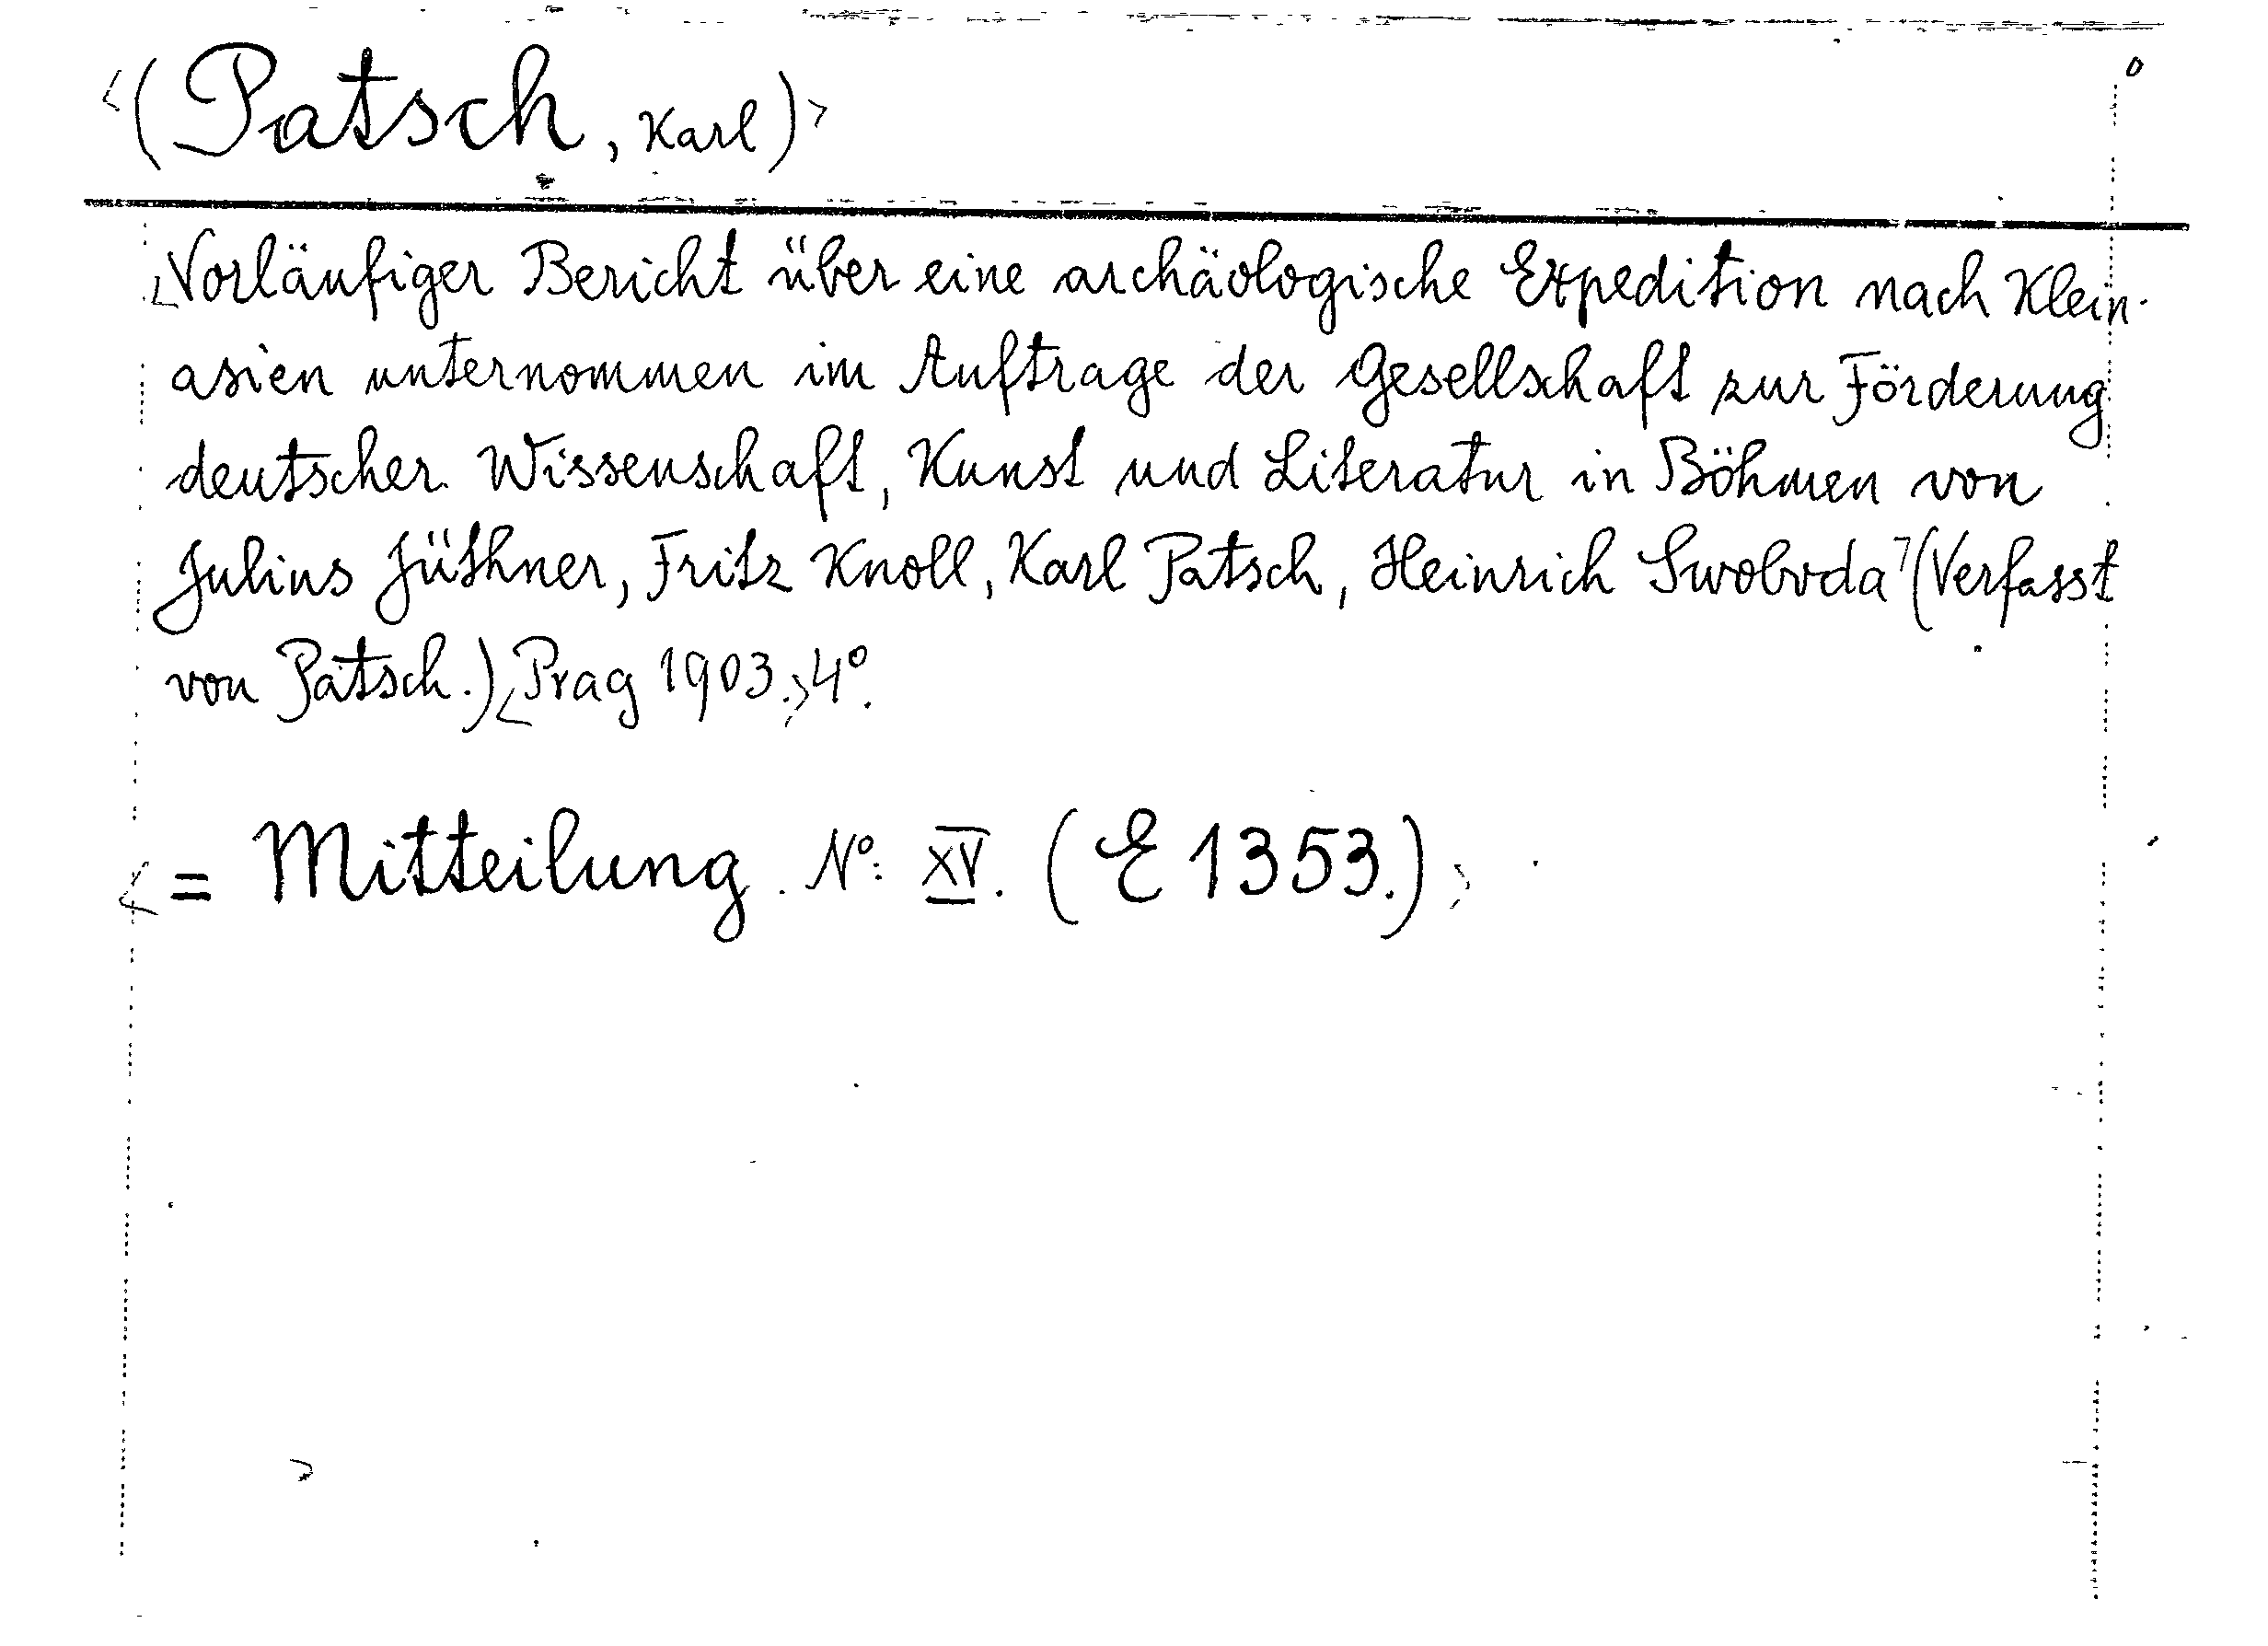 <(Patsch, Karl)>
<Vorläufiger Bericht über eine archäologische Expedition nach Klein-
asien unternommen im Auftrage der Gesellschaft zur Förderung
deutscher Wissenschaft, Kunst und Literatur in Böhmen von
Julius Jüthner, Fritz Knoll, Karl Patsch, Heinrich Swoboda> (Verfasst
von Patsch.) <Prag 1903.> 4°.
<= Mitteilung No: XV. (E 1353.)>